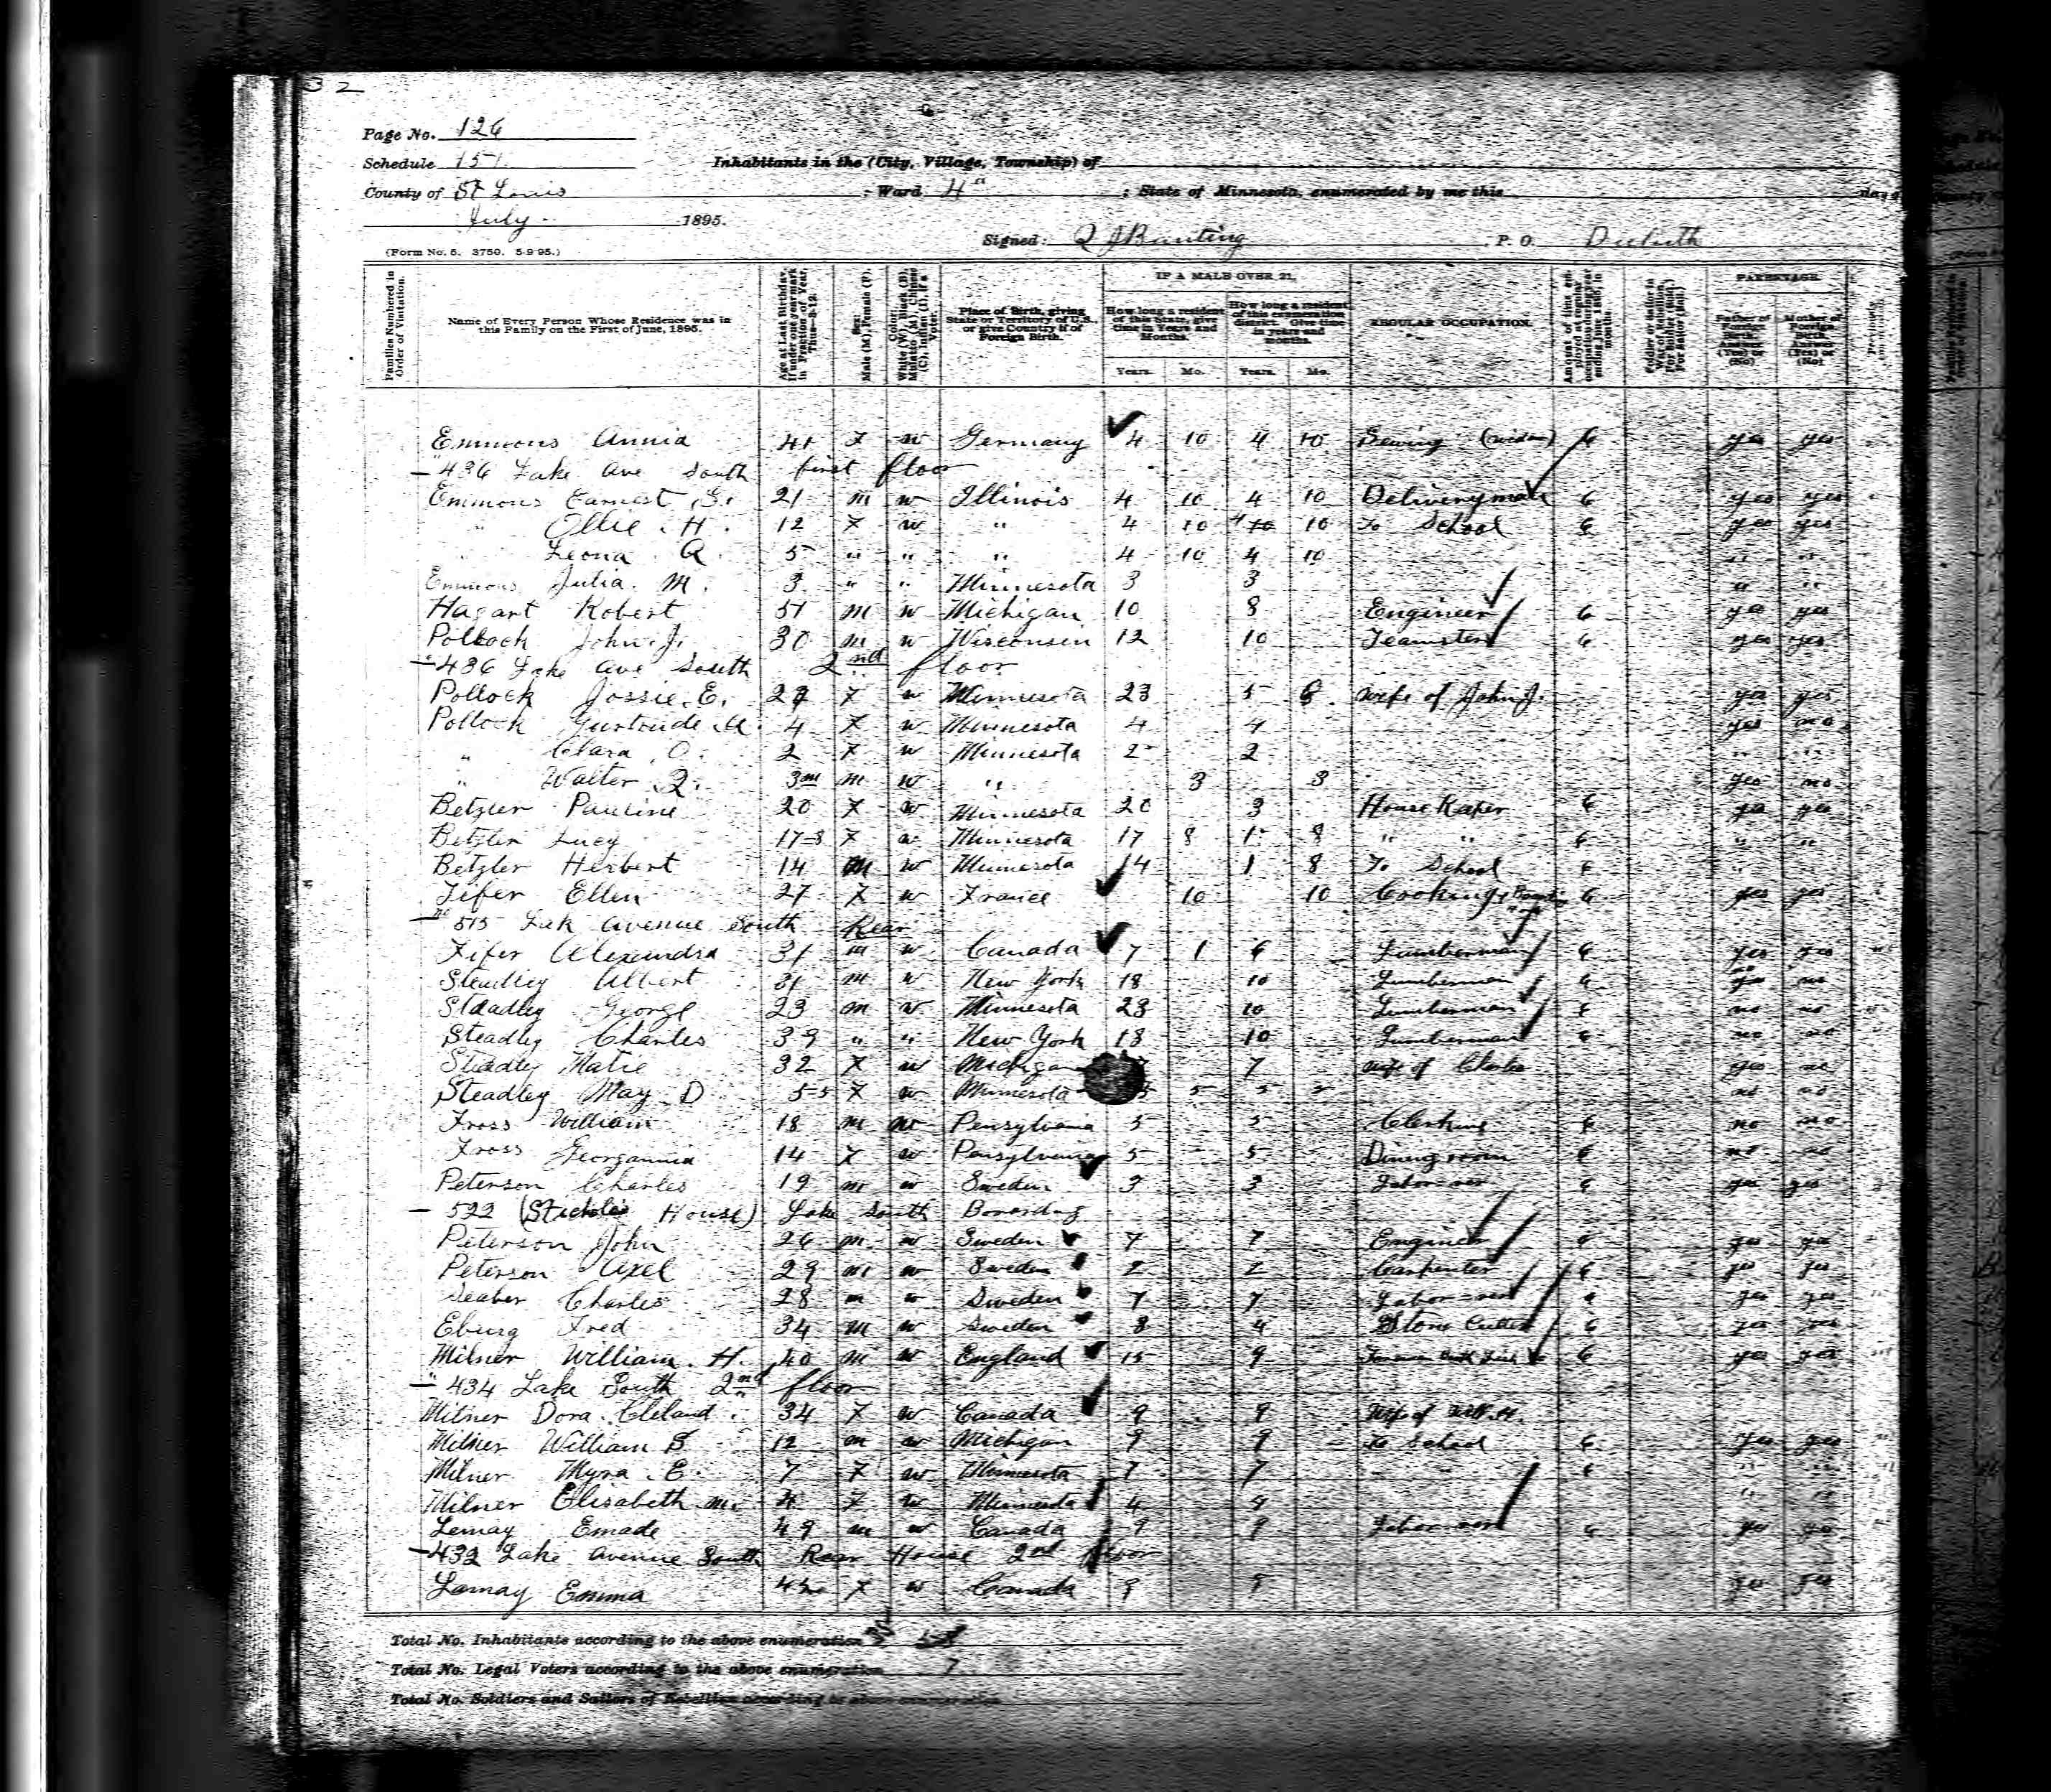 32
Page No. 126
Schedule 151 Inhabitants in the (City, Village, Township) of
County of St Louis ; Ward 4" ; State of Minnesota, enumerated by me this day
July 1895.
Signed: Banting P. O. Duluth
(Form No. 5. 3750. 5-9-95.)
Families Numbered in Order of Visitation. Name of Every Person Whose Residence was in this Family on the First of June, 1895. Age at Last Birthday. If under one year mark in Fraction of Year, Thus—3-12. Sex: Male (M), Female (F). Color: Place of Birth, giving State or Territory of U.S., or give Country if of Foreign Birth. IF A MALE OVER 21, How long a resident of this State, give time in Years and Months. How long a resident of this enumeration district. Give time in years and months. REGULAR OCCUPATION. PARENTAGE. Father of Foreign Birth Answer (Yes) or (No) Mother of Foreign Birth. Answer (Yes) or (No)
Years. Mo. Years. Mo.
Emmons Annia 41 F w Germany 4 10 4 10 Sewing (widow) 6 yes yes
436 Lake Ave South first floor
Emmons Earnest 21 m w Illinois 4 10 4 10 Deliveryman 6 yes yes
" Ollie H. 12 F w " 4 10 4 10 To School 6 yes yes
" Leona A. 5 " " " 4 10 4 10 " "
Emmons Julia M. 3 " " Minnesota 3 3 " "
Hagart Robert 51 m w Michigan 10 8 Engineer 6 yes yes
Pollock John J. 30 m w Wisconsin 12 10 Teamster 6 yes yes
436 Lake Ave South 2nd floor
Pollock Jossie E. F w Minnesota 23 5 6 wife of John J. yes yes
Pollock Gurtrude A. 4 F w Minnesota 4 4 yes no
" Clara O. 2 F w Minnesota 2 2 " "
" Walter 3m m w " 3 3 yes no
Betzler Pauline 20 F w Minnesota 20 3 House Keper 6 yes yes
Betzler Lucy 17-8 F w Minnesota 17 8 1 8 " " 6 " "
Betzler Herbert 14 m w Minnesota 14 1 8 To School 6 "
Fifer Ellen 27 F w France 10 10 Cooking 6 yes yes
no 515 Lak Avenue South Rear
Fifer Alexandra 31 m w Canada 7 1 6 Lumberman 6 yes yes
Steadley Albert 31 m w New York 18 10 Lumberman 6 no no
Steadley George 23 m w Minnesota 23 10 Lumberman 6 no no
Steadley Charles 39 " " New York 18 10 Lumberman 6 no no
Steadley Matie 32 F w Michigan 7 wife of Charles yes no
Steadley May D 5-5 F w Minnesota 5 5 5 no no
Fross William 18 m w Pensylvania 5 5 Clerking 6 no no
Fross Georgannia 14 F w Pensylvania 5 5 Dining room 6 no no
Peterson Charles 19 m w Sweden 3 3 Laborer 6 yes yes
522 House) Lake South Boarding
Peterson John 26 m w Sweden 7 7 Engineer 6 yes yes
Peterson Axel 29 m w Sweden 2 2 Carpenter 6 yes yes
Charles 28 m w Sweden 7 7 6 yes yes
Eburg Fred 34 m w Sweden 8 4 Stone Cutter 6 yes yes
Milner William H. 40 m w England 15 9 6 yes yes
434 Lake South 2nd floor
Milner Dora Cleland 34 F w Canada 9 9 Wife of Wm. H.
Milner William 12 m w Michigan 9 9 To School 6 yes yes
Milner Myra E. 7 F w Minnesota 7 7 6 " "
Milner Elisabeth m. 4 F w Minnesota 4 4 " "
Lemay Emade 49 m w Canada 9 9 6 yes yes
432 Lake Avenue South Rear House 2nd floor
Lamay Emma F w Canada 9 yes yes
Total No. Inhabitants according to the above enumeration
Total No. Legal Voters according to the above enumeration 7
Total No. Soldiers and Sailors of Rebellion according to above enumeration